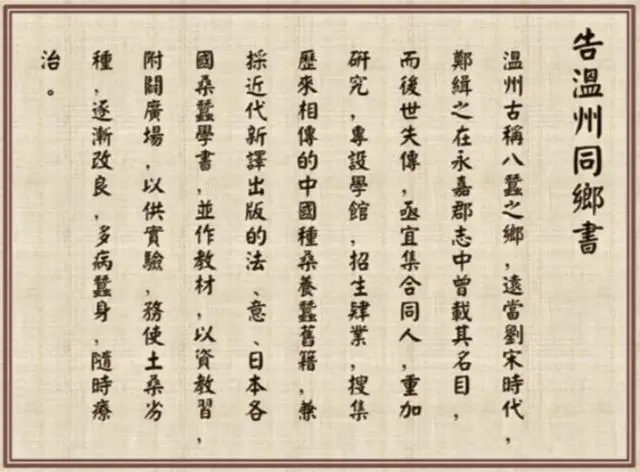 告溫州同鄉書
溫州古稱八蠶之鄉，遠當劉宋時代，
鄭緝之在永嘉郡志中曾載其名目，
而後世失傳，亟宜集合同人，重加
研究，專設學館，招生肄業，搜集
歷來相傳的中國種桑養蠶舊籍，兼
採近代新譯出版的法、意、日本各
國桑蠶學書，並作教材，以資教習，
附闢廣場，以供實驗，務使土桑劣
種，逐漸改良，多病蠶身，隨時療
治。